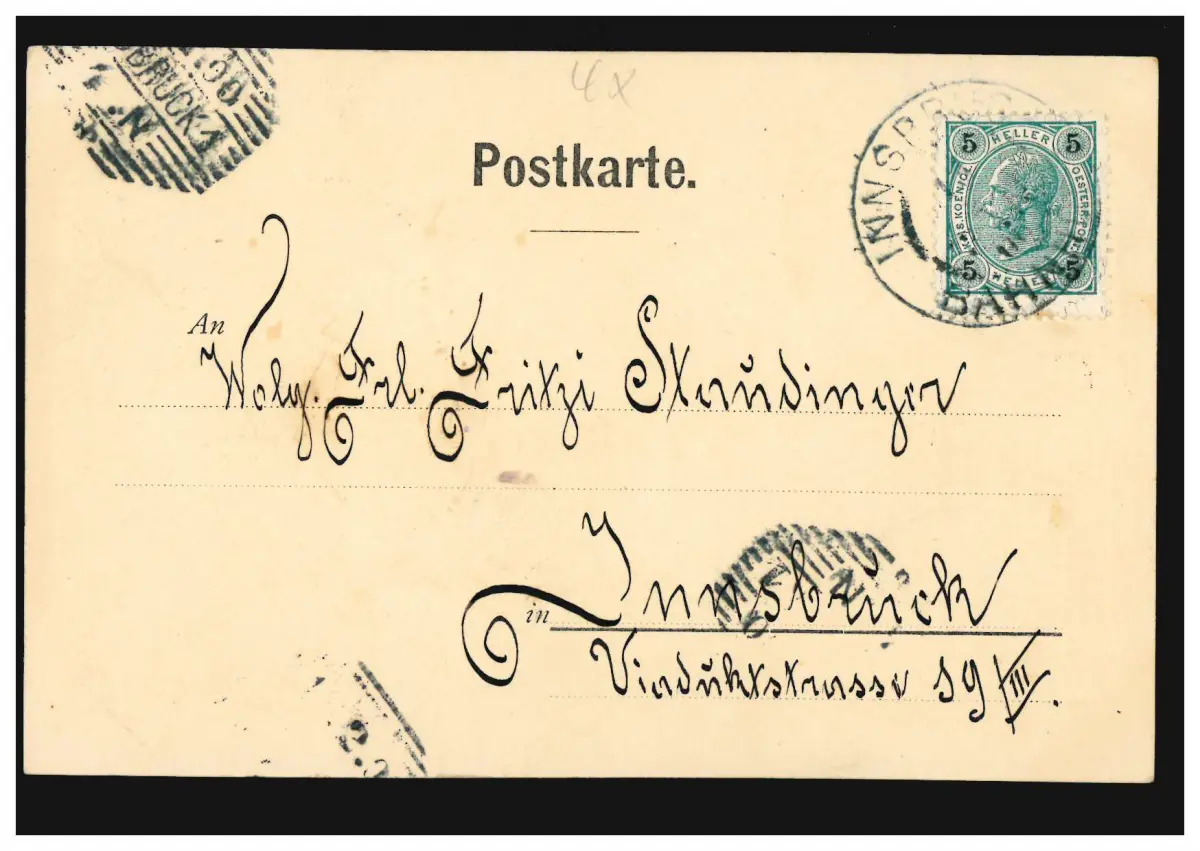 4x
BRUCK 1
00
N
Postkarte.
INNSBRUCK
BAHN
5 HELLER 5
KAIS. KOENIGL. OESTERR. POST
5 HELLER 5
An
Wolg. Frl. Fritzi Staudinger
in Innsbruck
Viaduktstrasse 19/III.